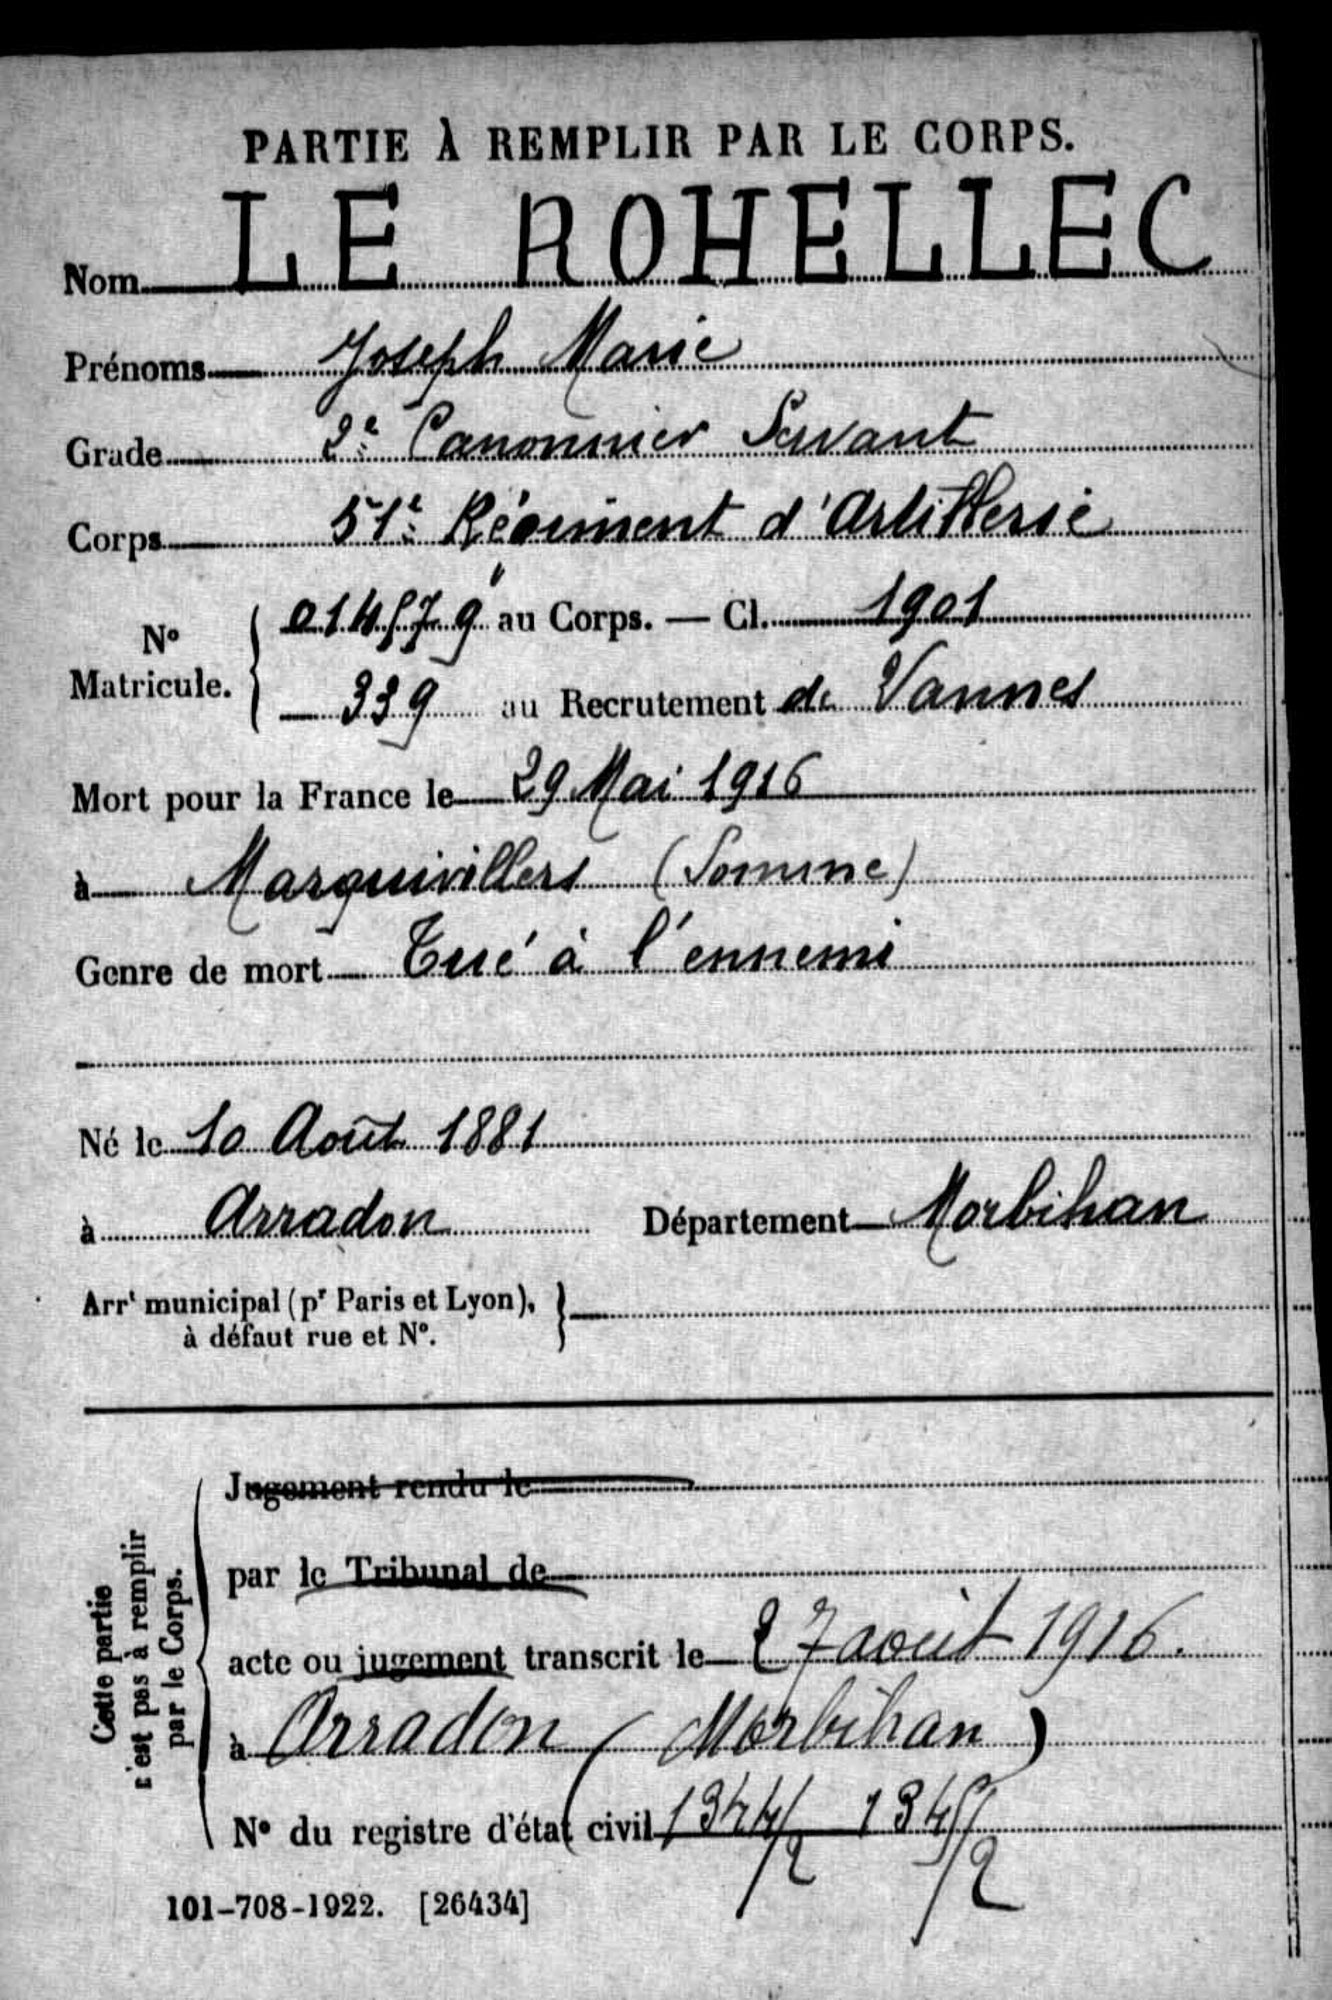 PARTIE À REMPLIR PAR LE CORPS.
Nom LE ROHELLEC
Prénoms Joseph Marie
Grade 2e Canonnier Servant
Corps 51e Régiment d'Artillerie
N° Matricule. 014579 au Corps. — Cl. 1901
339 au Recrutement de Vannes
Mort pour la France le 29 Mai 1916
à Marquivillers (Somme)
Genre de mort Tué à l'ennemi
Né le 10 Août 1881
à Arradon Département Morbihan
Arrt municipal (pr Paris et Lyon),
à défaut rue et N°.
Cette partie
n'est pas à remplir
par le Corps.
Jugement rendu le
par le Tribunal de
acte ou jugement transcrit le 27 août 1916.
à Arradon (Morbihan)
N° du registre d'état civil 1344/2 1345/2
101-708-1922. [26434]